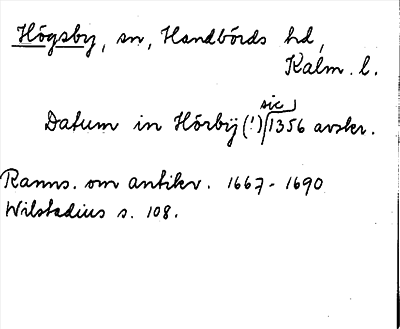 Högsby, sn, Handbörds hd,
Kalm. l.
sic
Datum in Hörbÿ (!) 1356 avskr.
Ranns. om antikv. 1667-1690
Wilstadius s. 108.